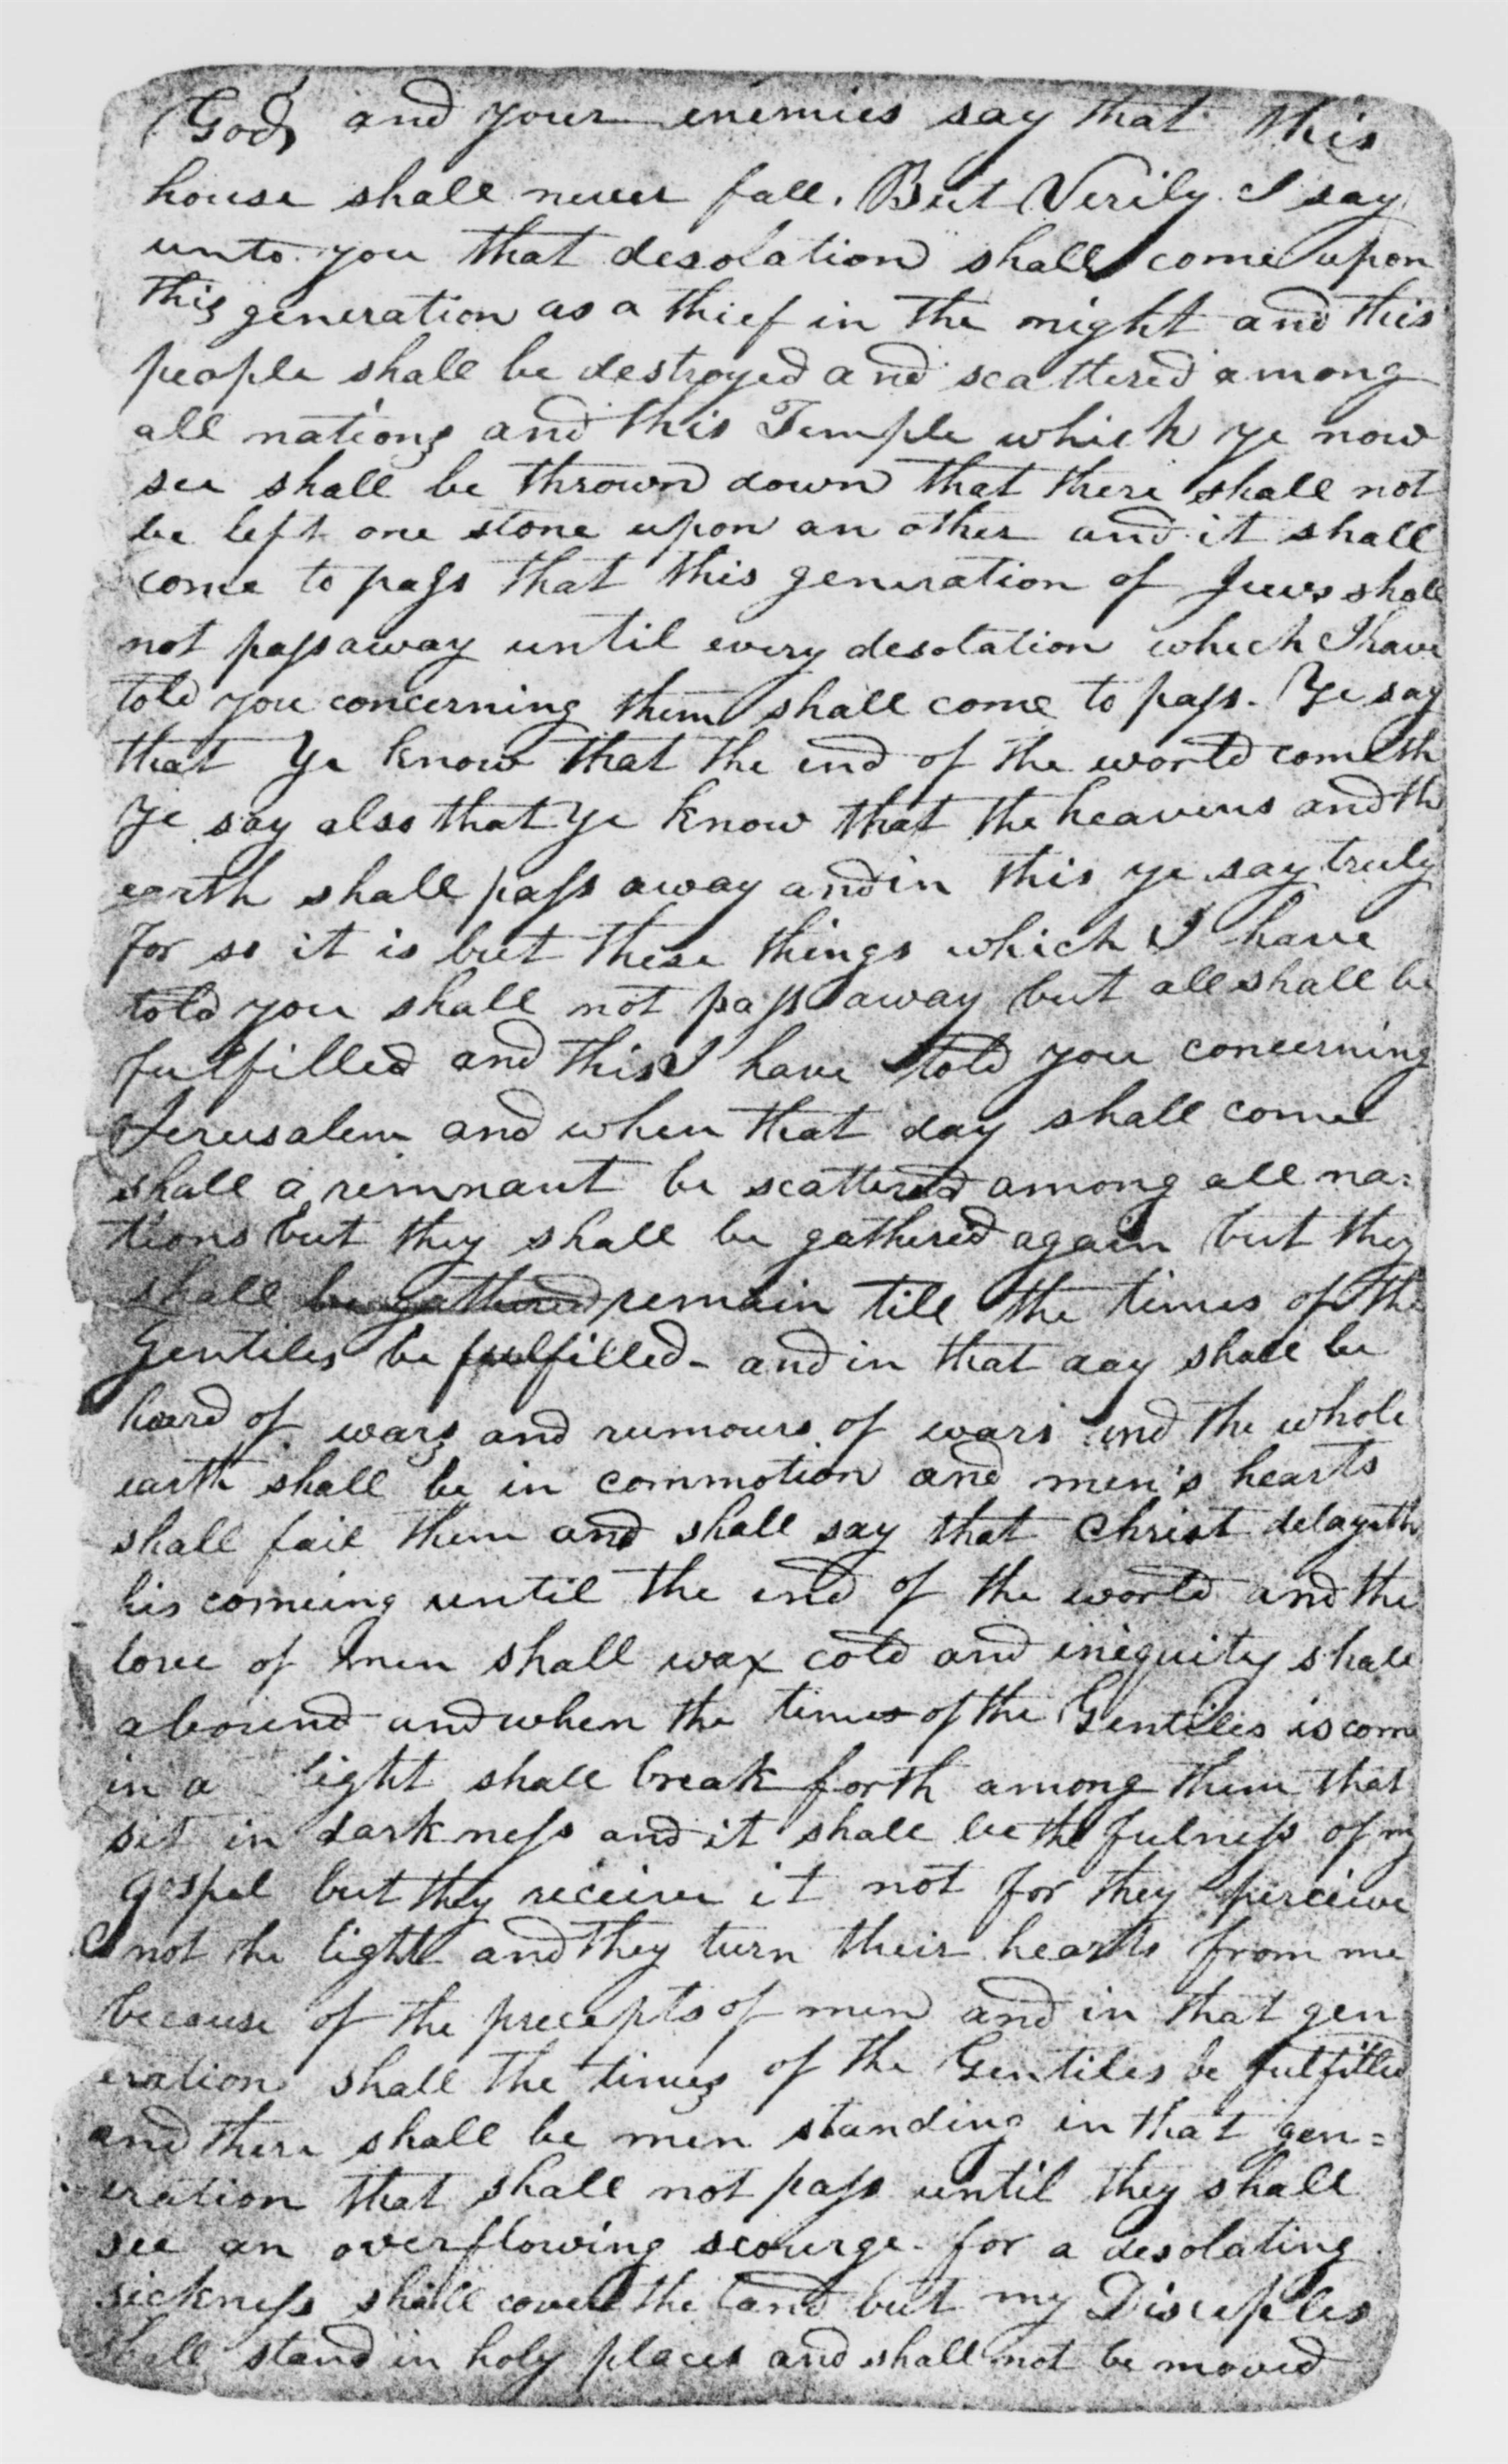 God, and your enemies say that this
house shall never fall. But Verily I say
unto you that desolation shall come upon
this generation as a thief in the night and this
people shall be destroyed and scattered among
all nations and this Temple which ye now
see shall be thrown down that there shall not
be left one stone upon an other and it shall
come to pass that this generation of Jews shall
not pass away until every desolation which I have
told you concerning them shall come to pass. Ye say
that Ye know that the end of the world cometh
Ye say also that Ye know that the heavens and th
earth shall pass away and in this ye say truly
For so it is but these things which I have
told you shall not pass away but all shall be
fulfilled and this I have told you concerning
Jerusalem and when that day shall come
shall a remnant be scattered among all na=
tions but they shall be gathered again but they
shall be gathered remain till the times of the
Gentiles be fulfilled- and in that day shall be
heard of wars and rumours of wars and the whole
earth shall be in commotion and men's hearts
shall fail them and shall say that Christ delayeth
his comeing until the end of the world and the
love of men shall wax cold and iniquity shall
abound and when the times of the Gentiles is come
in a light shall break forth among them that
sit in darkness and it shall be the fulness of my
gospel but they receive it not for they perceive
not the light and they turn their hearts from me
because of the precepts of men and in that gen
eration shall the times of the Gentiles be fulfilled
and there shall be men standing in that gen=
eration that shall not pass until they shall
see an overflowing scourge- for a desolating
sickness shall cover the land but my Disciples
shall stand in holy places and shall not be moved